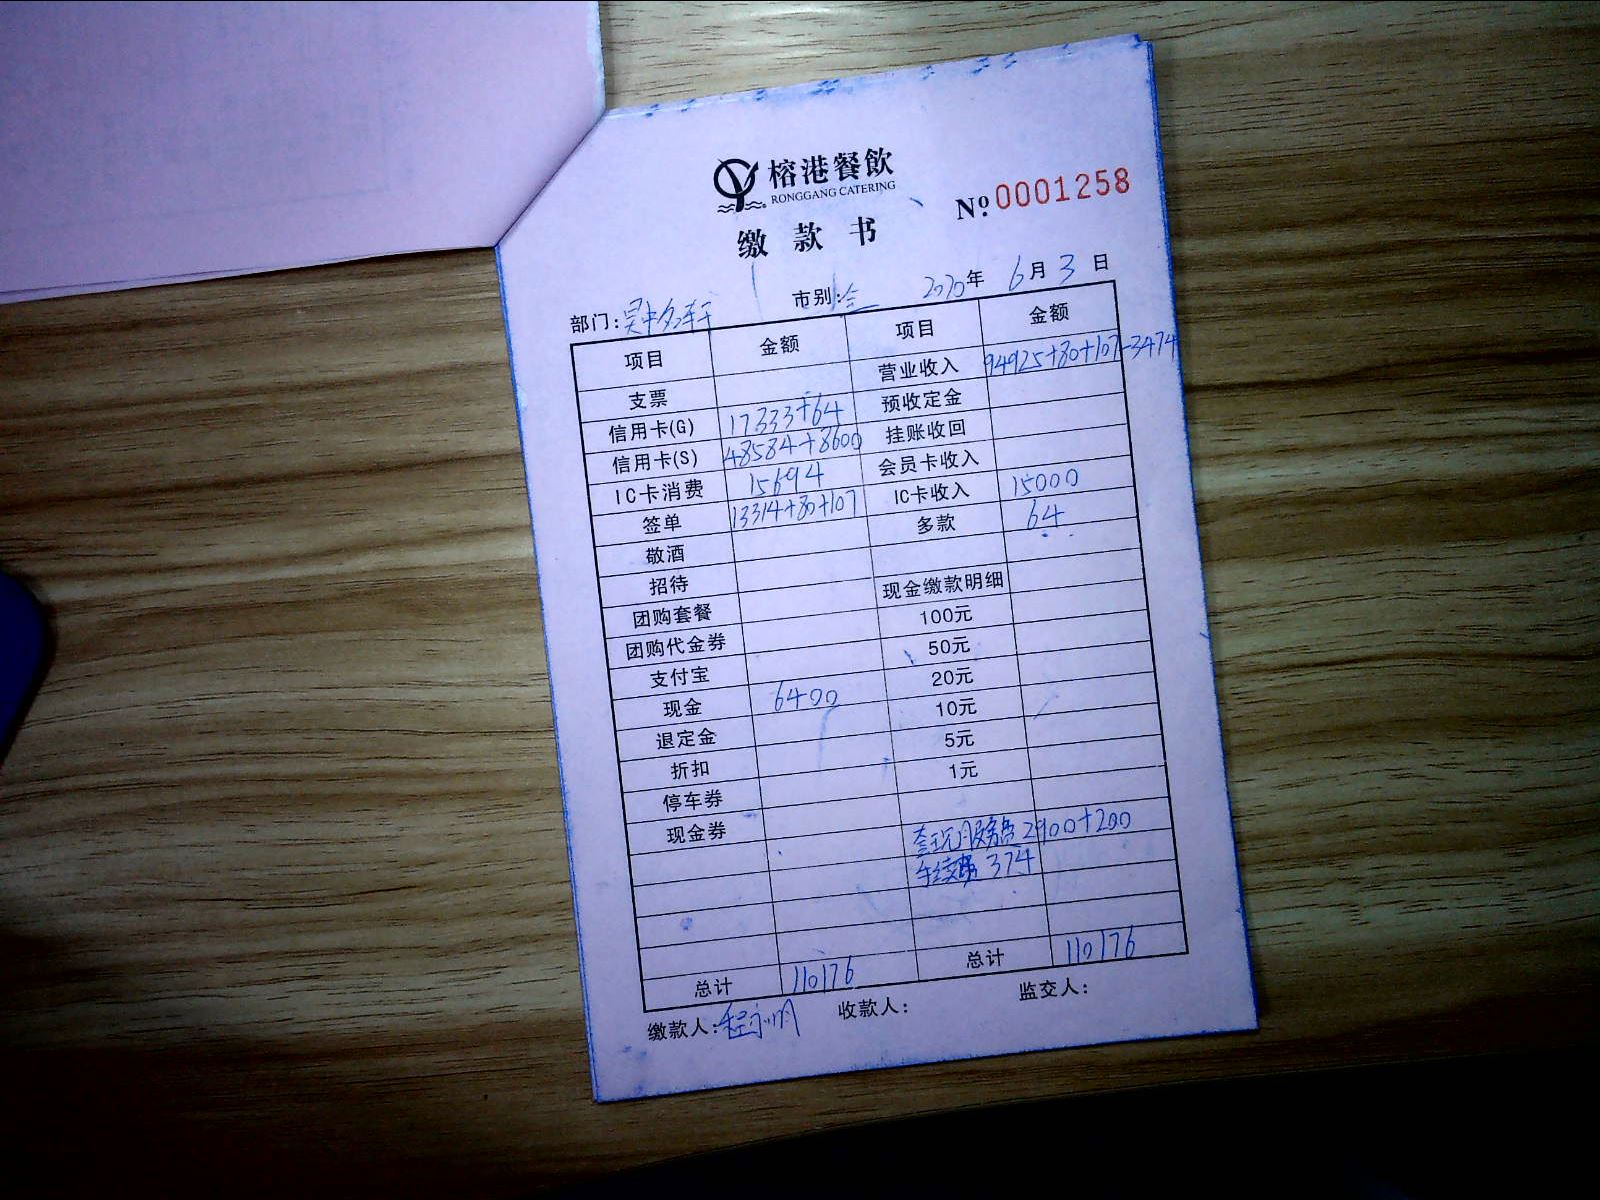 榕港餐飲
RONGGANG CATERING
№ 0001258
缴款书
部门: 市别: 全 2020年 6月 3日
项目 金额 项目 金额
支票 营业收入 94925+80+107-3474
信用卡(G) 17333+64 预收定金
信用卡(S) 48584+8600 挂账收回
IC卡消费 15694 会员卡收入
签单 13314+80+107 IC卡收入 15000
敬酒 多款 64
招待
团购套餐 现金缴款明细
团购代金券 100元
支付宝 50元
现金 6400 20元
退定金 10元
折扣 5元
停车券 1元
现金券
2900+200
手续费 374
总计 110176 总计 110176
缴款人: 收款人: 监交人: